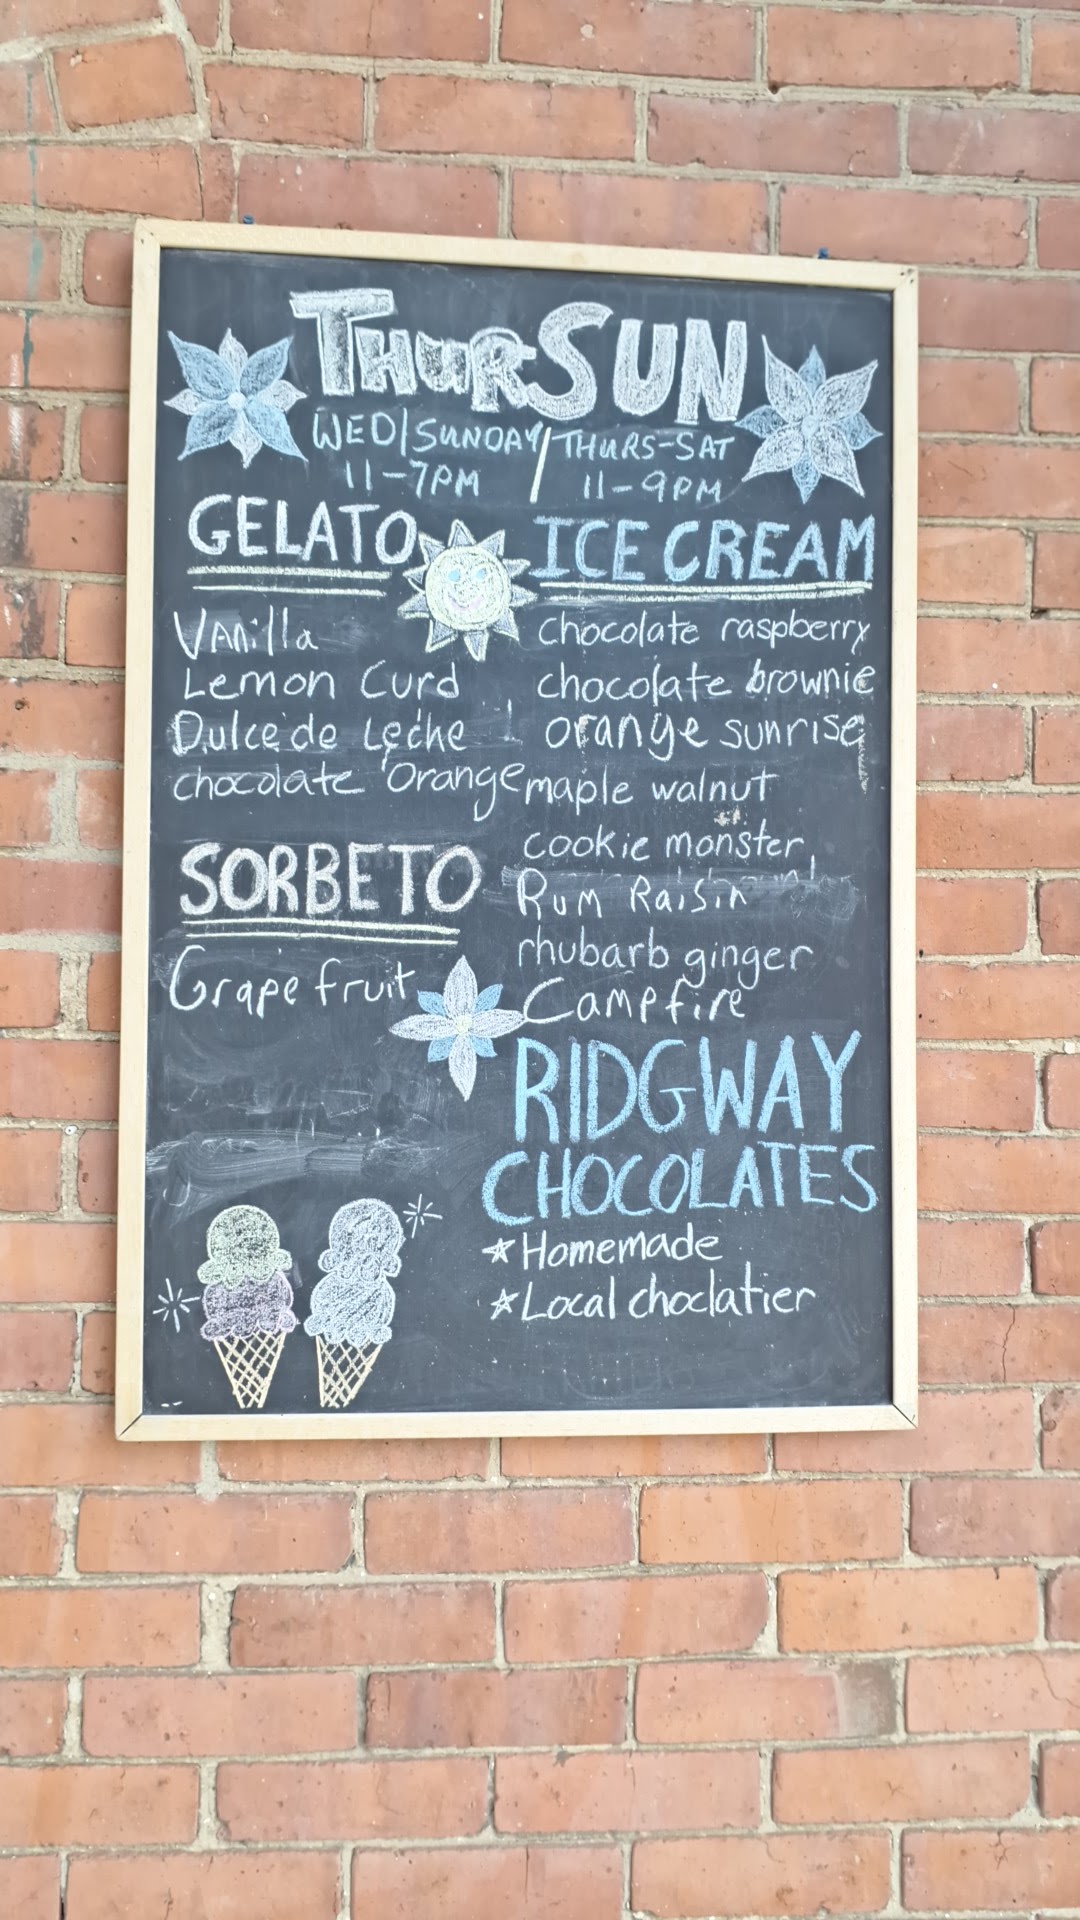 THURSUN
WED/SUNDAY / THURS-SAT
11-7PM / 11-9PM
GELATO
Vanilla
Lemon Curd
Dulce de Leche
chocolate orange
SORBETO
Grapefruit
ICE CREAM
chocolate raspberry
chocolate brownie
orange sunrise
maple walnut
cookie monster
Rum Raisin
rhubarb ginger
Campfire
RIDGWAY
CHOCOLATES
*Homemade
*Local choclatier